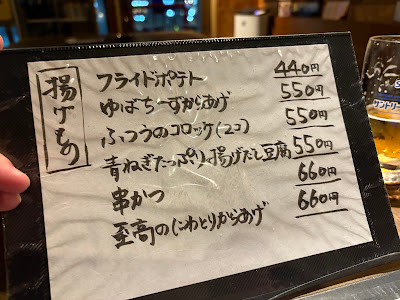 揚げもの
フライドポテト 440円
ゆばちーずからあげ 550円
ふつうのコロッケ(2コ) 550円
青ねぎたっぷり揚げだし豆腐 550円
串かつ 660円
至高のにわとりからあげ 660円
サントリー